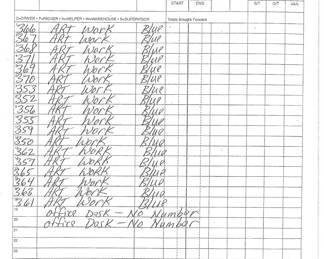 START END S/T O/T VAN
D=DRIVER P=PACKER H=HELPER W=WAREHOUSE S=SUPERVISOR Totals Brought Forward
366 ART Work Blue
367 ART Work Blue
368 ART Work Blue
371 ART Work Blue
369 ART Work Blue
370 ART Work Blue
353 ART Work Blue
352 ART Work Blue
356 ART Work Blue
355 ART Work Blue
359 ART Work Blue
350 ART Work Blue
362 ART WORK Blue
357 ART WORK Blue
365 ART WORK Blue
364 ART WORK Blue
368 ART WORK Blue
361 ART WORK Blue
office Desk - No Number
office Desk - No Number